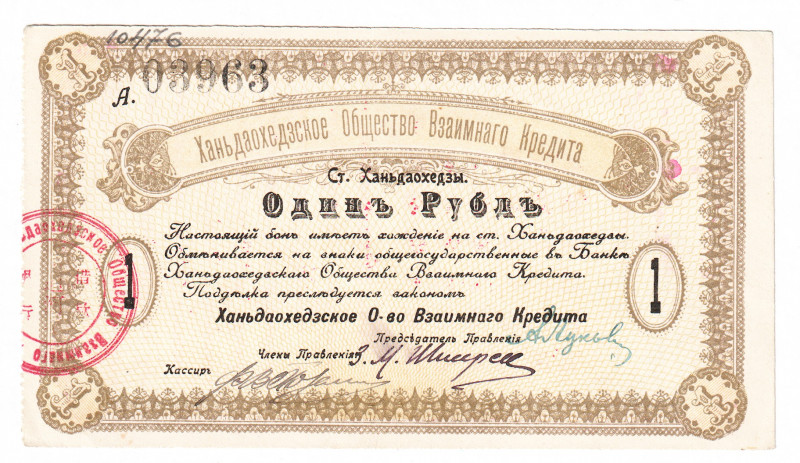 10476
А. 03963
Ханьдаохедзское Общество Взаимнаго Кредита
Ст. Ханьдаохедзы.
Одинъ Рубль
Настоящій бонъ имѣетъ хожденіе на ст. Ханьдаохедзы.
Обмѣнивается на знаки общегосударственные въ Банкѣ
Ханьдаохедзскаго Общества Взаимнаго Кредита.
Поддѣлка преслѣдуется закономъ
1
1
Ханьдаохедзское О-во Взаимнаго Кредита
Предсѣдатель Правленія
Члены Правленія
Кассиръ
Общество Взаимнаго
1
1
1
1